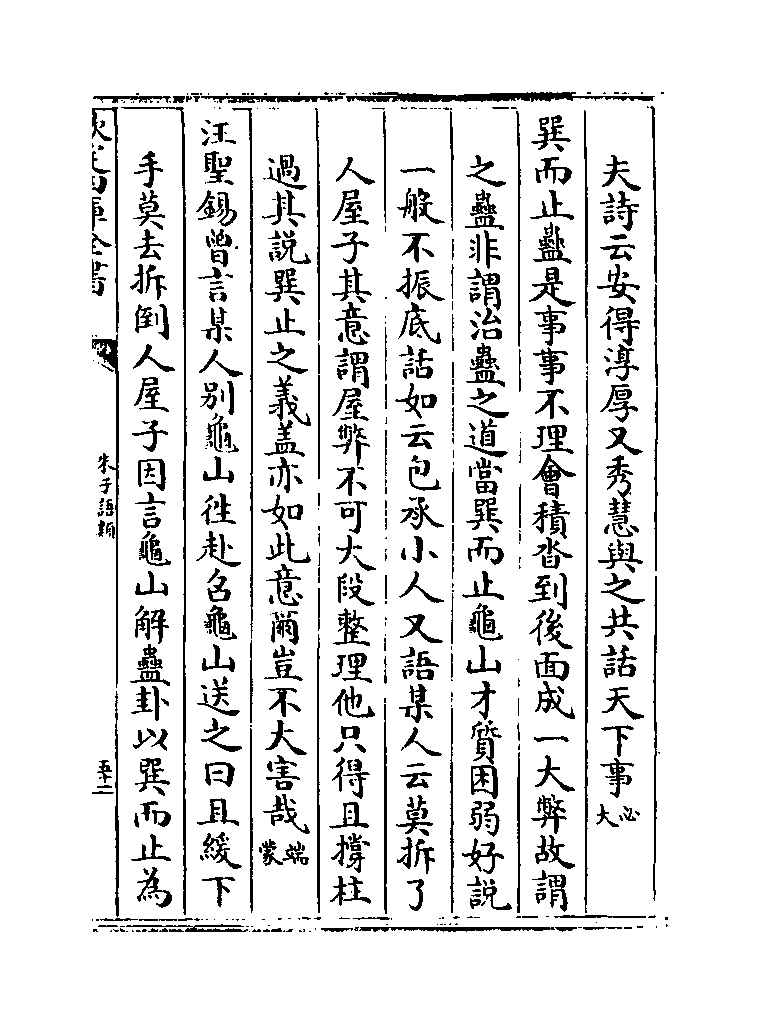 夫詩云安得淳厚又秀慧與之共話天下事必大
巽而止蠱是事事不理會積沓到後面成一大弊故謂
之蠱非謂治蠱之道當巽而止龜山才質困弱好說
一般不振底話如云包承小人又語某人云莫拆了
人屋子其意謂屋弊不可大段整理他只得且撐柱
過其說巽止之義盖亦如此意爾豈不大害哉端蒙
汪聖錫曾言某人别龜山徃赴召龜山送之曰且緩下
手莫去拆倒人屋子因言龜山解蠱卦以巽而止為
欽定四庫全書
朱子語類
五十二